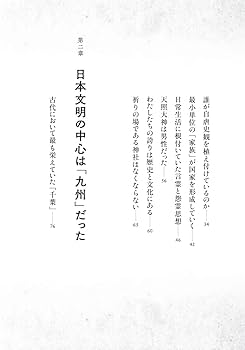 誰が自虐史観を植え付けているのか――34
最小単位の「家族」が国家を形成していく――42
日常生活に根付いていた言霊と怨霊思想――46
天照大神は男性だった――56
わたしたちの誇りは歴史と文化にある――60
祈りの場である神社はなくならない――63
第二章
日本文明の中心は「九州」だった
古代において最も栄えていた「千葉」――76